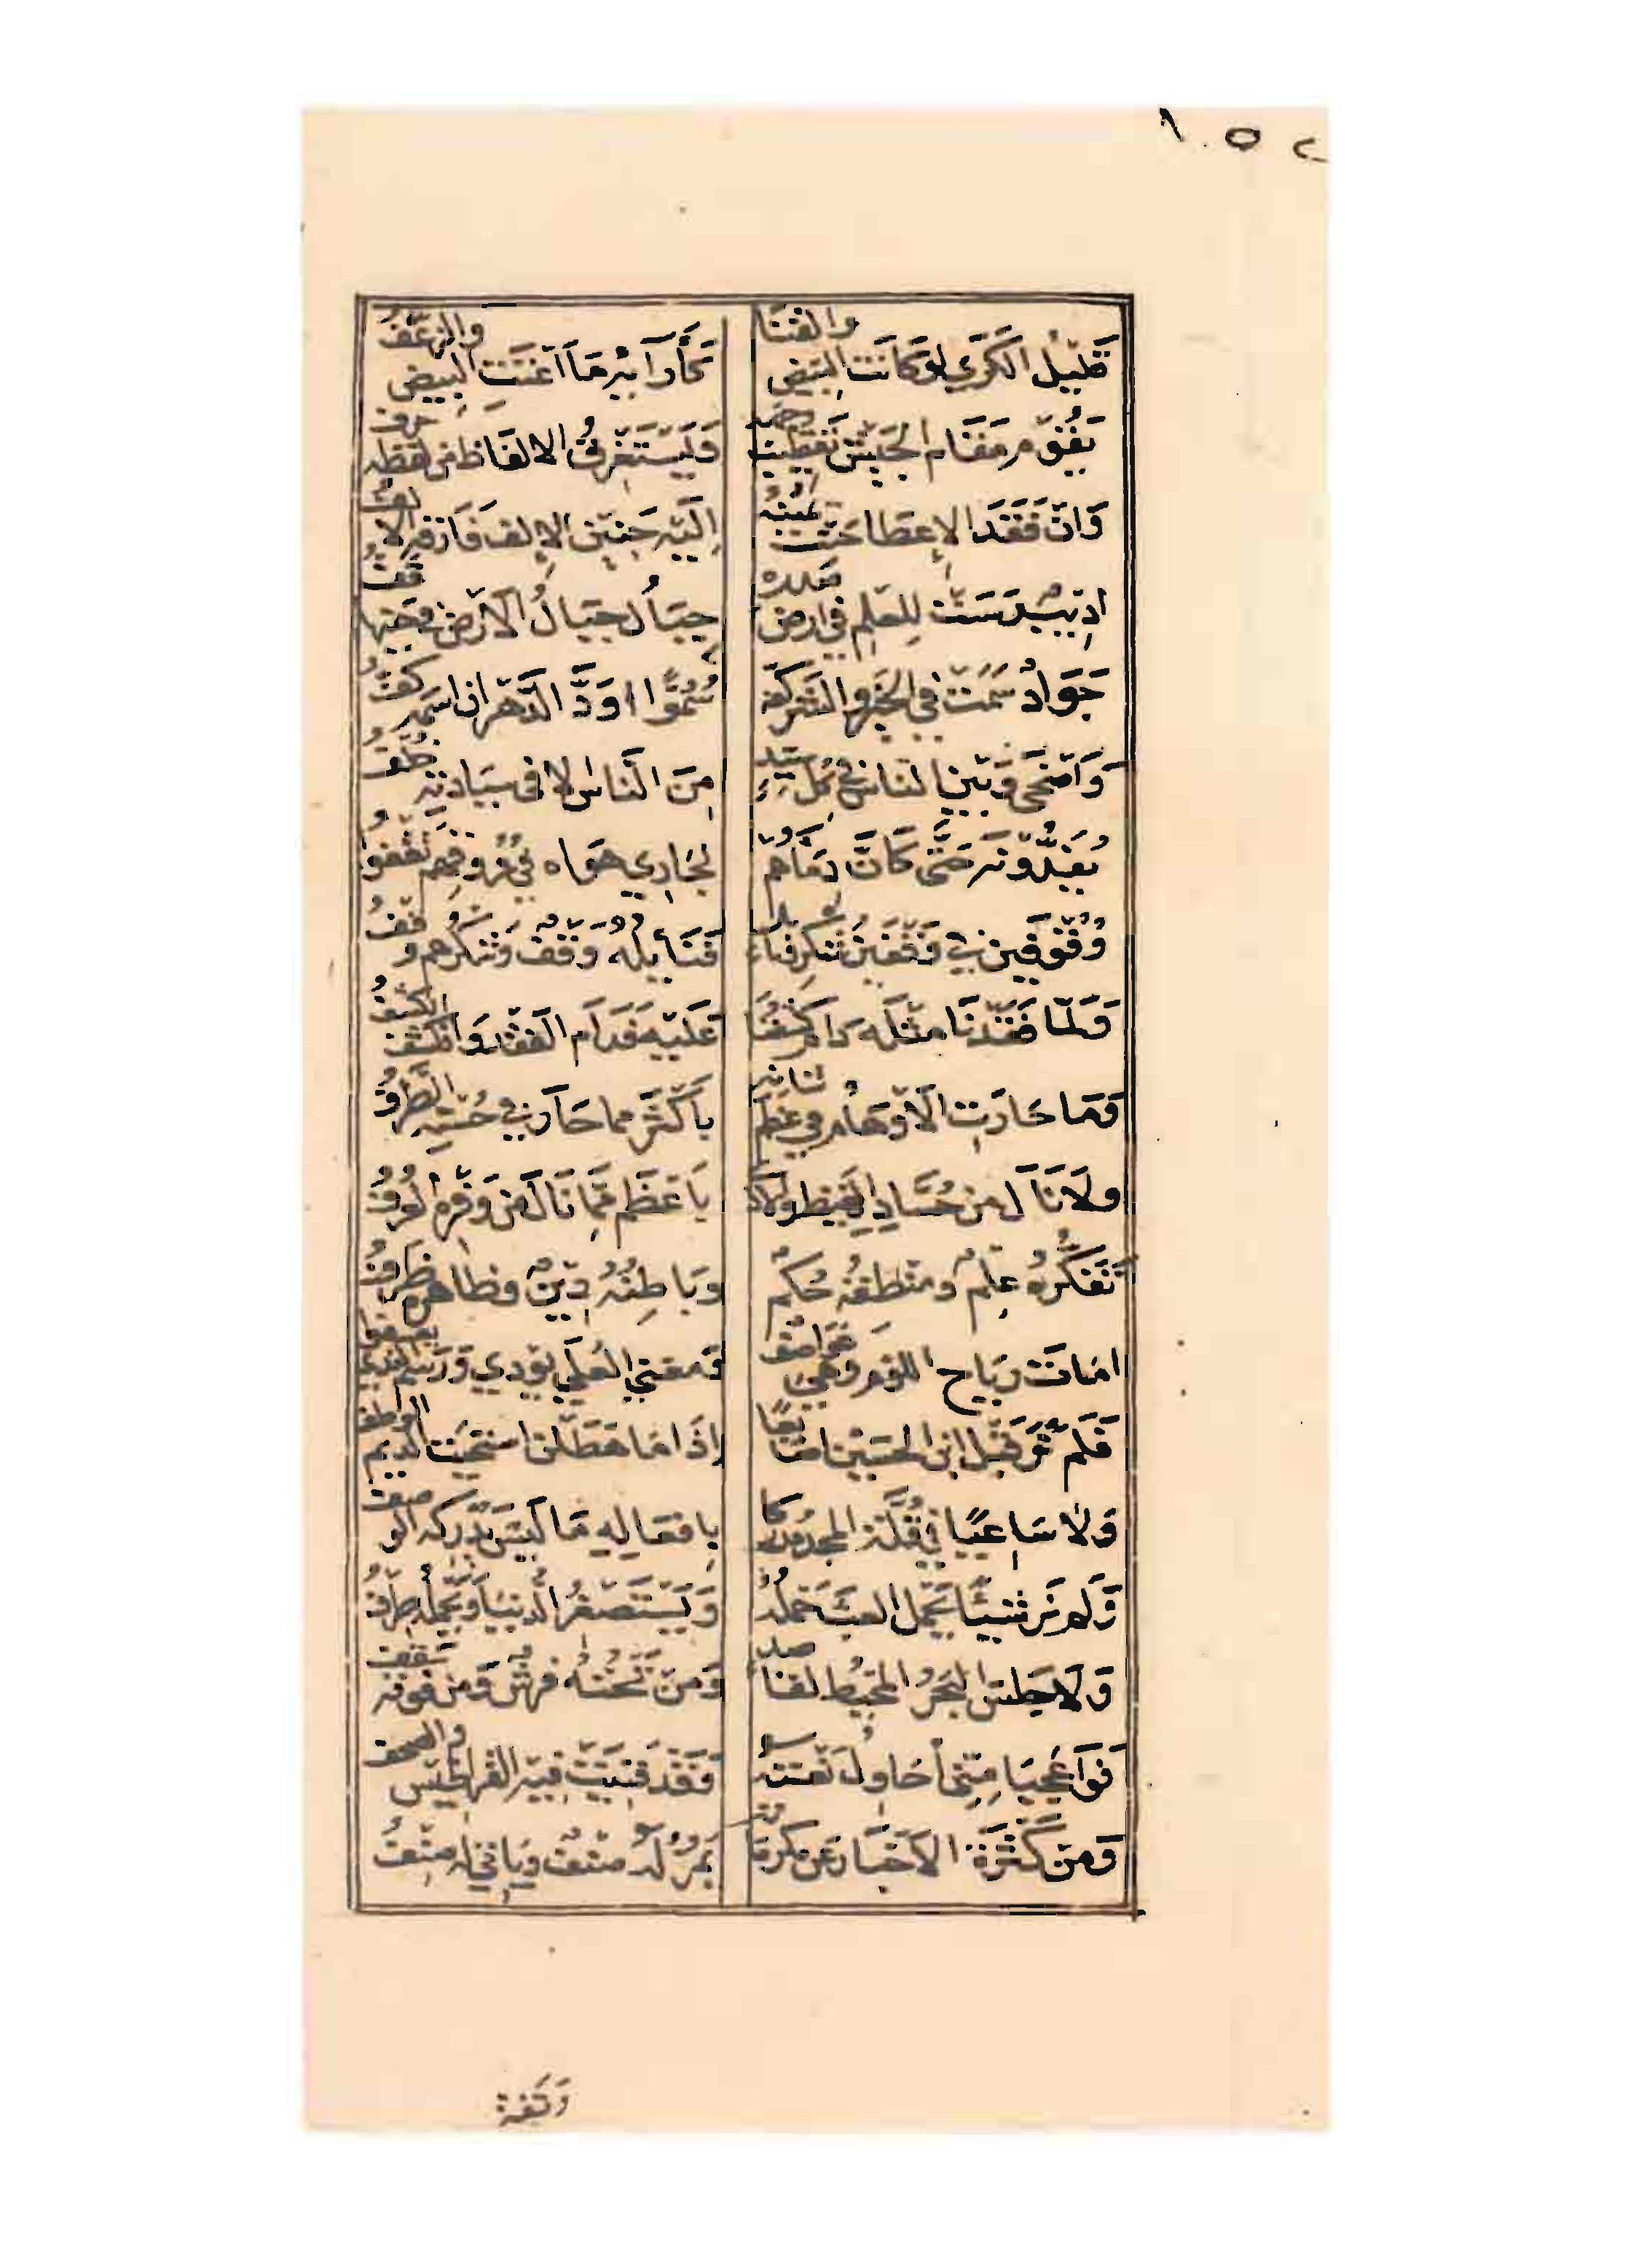 ١٠٥٢
قَلِيْلُ الكَرَى لَوْ كَانَتْ البِيْضُ والقَنَا كَآرَائِهِ مَا اَغْنَتِ البِيْضُ والزَّعْفُ
يَقُوْمُ مَقَامَ الجَيْشِ تَقْطِيْبُ وَجْهِهِ وَيَسْتَغْرِقُ الالفَاظَ مِنْ لَفْظِهِ حَرْفُ
وَاِنْ فَقَدَ الاِعْطَا حَنَّتْ يَمِيْنُهُ اِلَيْهِ حَنِيْنَ الاِلْفِ فَارَقَهُ الاِلْفُ
اَدِيْبٌ رَسَتْ لِلعِلْمِ فِي اَرْضِ صَدْرِهِ جِبَالٌ جِبَالُ الاَرْضِ فِي جَنْبِهَا قُفُّ
جَوَادٌ سَمَتْ فِي الخَيْرِ والشَّرِّ كَفُّهُ سُمُوًّا اوَدَّ الدَّهْرَ ان اسْمَهُ كَفُّ
وَاَضْحَى وَبَيْنَ النَّاسِ فِي كُلِّ سَيِّدٍ مِنَ النَّاسِ الا فِي سِيَادَتِهِ خُلْفُ
يُفَدُّوْنَهُ حَتَّى كَانَّ دِمَاءَهُمْ لِجَارِي هَوَاه فِي عُرُوْقِهِمْ تَقْفُوْا
وُقُوْفَيْنِ فِي وَقْفَيْنِ شُكْرٍ وَنَائِلٍ فَنَائِلُهُ وَقْفٌ وَشُكْرُهُمْ وَقْفُ
وَلَمَّا فَقَدْنَا مِثْلَه دَامَ كَشْفُنَا عَلَيْهِ فَدَامَ الفَقْدُ وَانْكَشَفَ الكَشْفُ
وَمَا حَارَتِ الاَوْهَامُ فِي عِظَمِ شَانِهِ بِاَكْثَرَ مما حَارَ فِي حُسْنِهِ الطَّرْفُ
ولاَ نَالَ من حُسَّادِهِ الغَيْظُ والاَذَى بِاَعْظَمَ مِمَّا نَالَ مِنْ وَفْرِهِ العُرْفُ
تَفَكُّرُهُ عِلْمٌ ومَنْطِقُهُ حُكْمٌ وبَاطِنُهُ دِيْنٌ وظَاهِرُهُ ظَرْفُ
امَاتَتْ رِيَاحَ اللؤمِ وَهْيَ عَوَاصِفٌ فَمَغْنَى العُلَى يُوْدِي وَرَسْمُ النَّدَى يَعْفُوْا
فَلَمْ نَرَ قَبْلَ ابْنِ الحُسَيْنِ اصَابِعًا اِذَا مَا هَطَلْنَ اسْتَحْيَتِ الدِّيَمُ الوُطْفُ
وَلا سَاعِيًا فِي قُلَّةِ المَجْدِ مُدْرِكًا بِافْعَالِهِ مَا لَيْسَ يُدْرِكُهُ الوَصْفُ
وَلَم نَرَ شَيْئًا يَحْمِلُ العِبْءَ حَمْلَهُ وَيَسْتَصْغِرُ الدُّنْيَا وَيَحْمِلُهُ طِرْفُ
وَلاَ جَلَسَ البَحْرُ المُحِيْطُ لِقَاصِدٍ وَمِنْ تَحْتِهِ فَرْشٌ وَمِنْ فَوْقِهِ سَقْفُ
فَوَا عَجَبَا مِنِّي اُحَاوِلُ نَعْتَهُ وَقَدْ فَنِيَتْ فِيْهِ القَرَاطِيْسُ والصُّحْفُ
وَمِنْ كَثْرَةِ الاَخْبَارِ عَنْ مَكْرُمَاتِهِ يَمُرُّ لَهُ صِنْفٌ وَيَاتِي لَهُ صِنْفُ
وَتَفْتَ